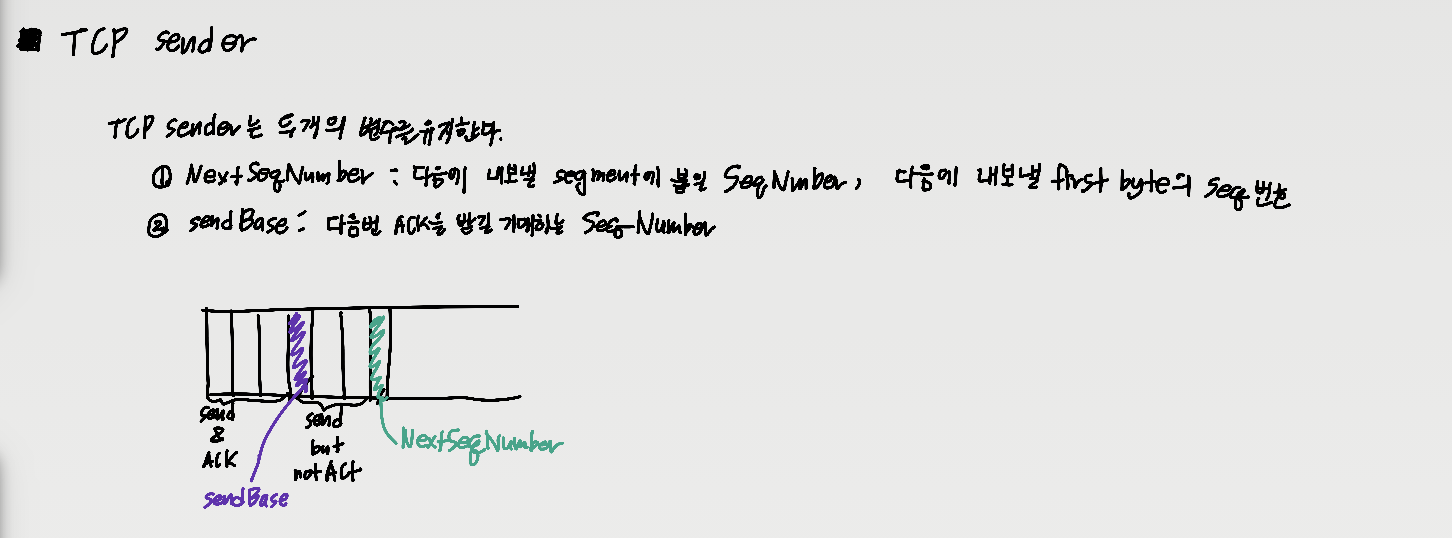 TCP sender
TCP sender는 두개의 변수를 유지한다.
① NextSeqNumber : 다음에 내보낼 segment에 붙일 SeqNmber, 다음에 내보낼 first byte의 seq 번호
② sendBase : 다음번 ACK을 받길 기대하는 Seq-Number
send & ACK
send but not ACK
NextSeqNumber
sendBase